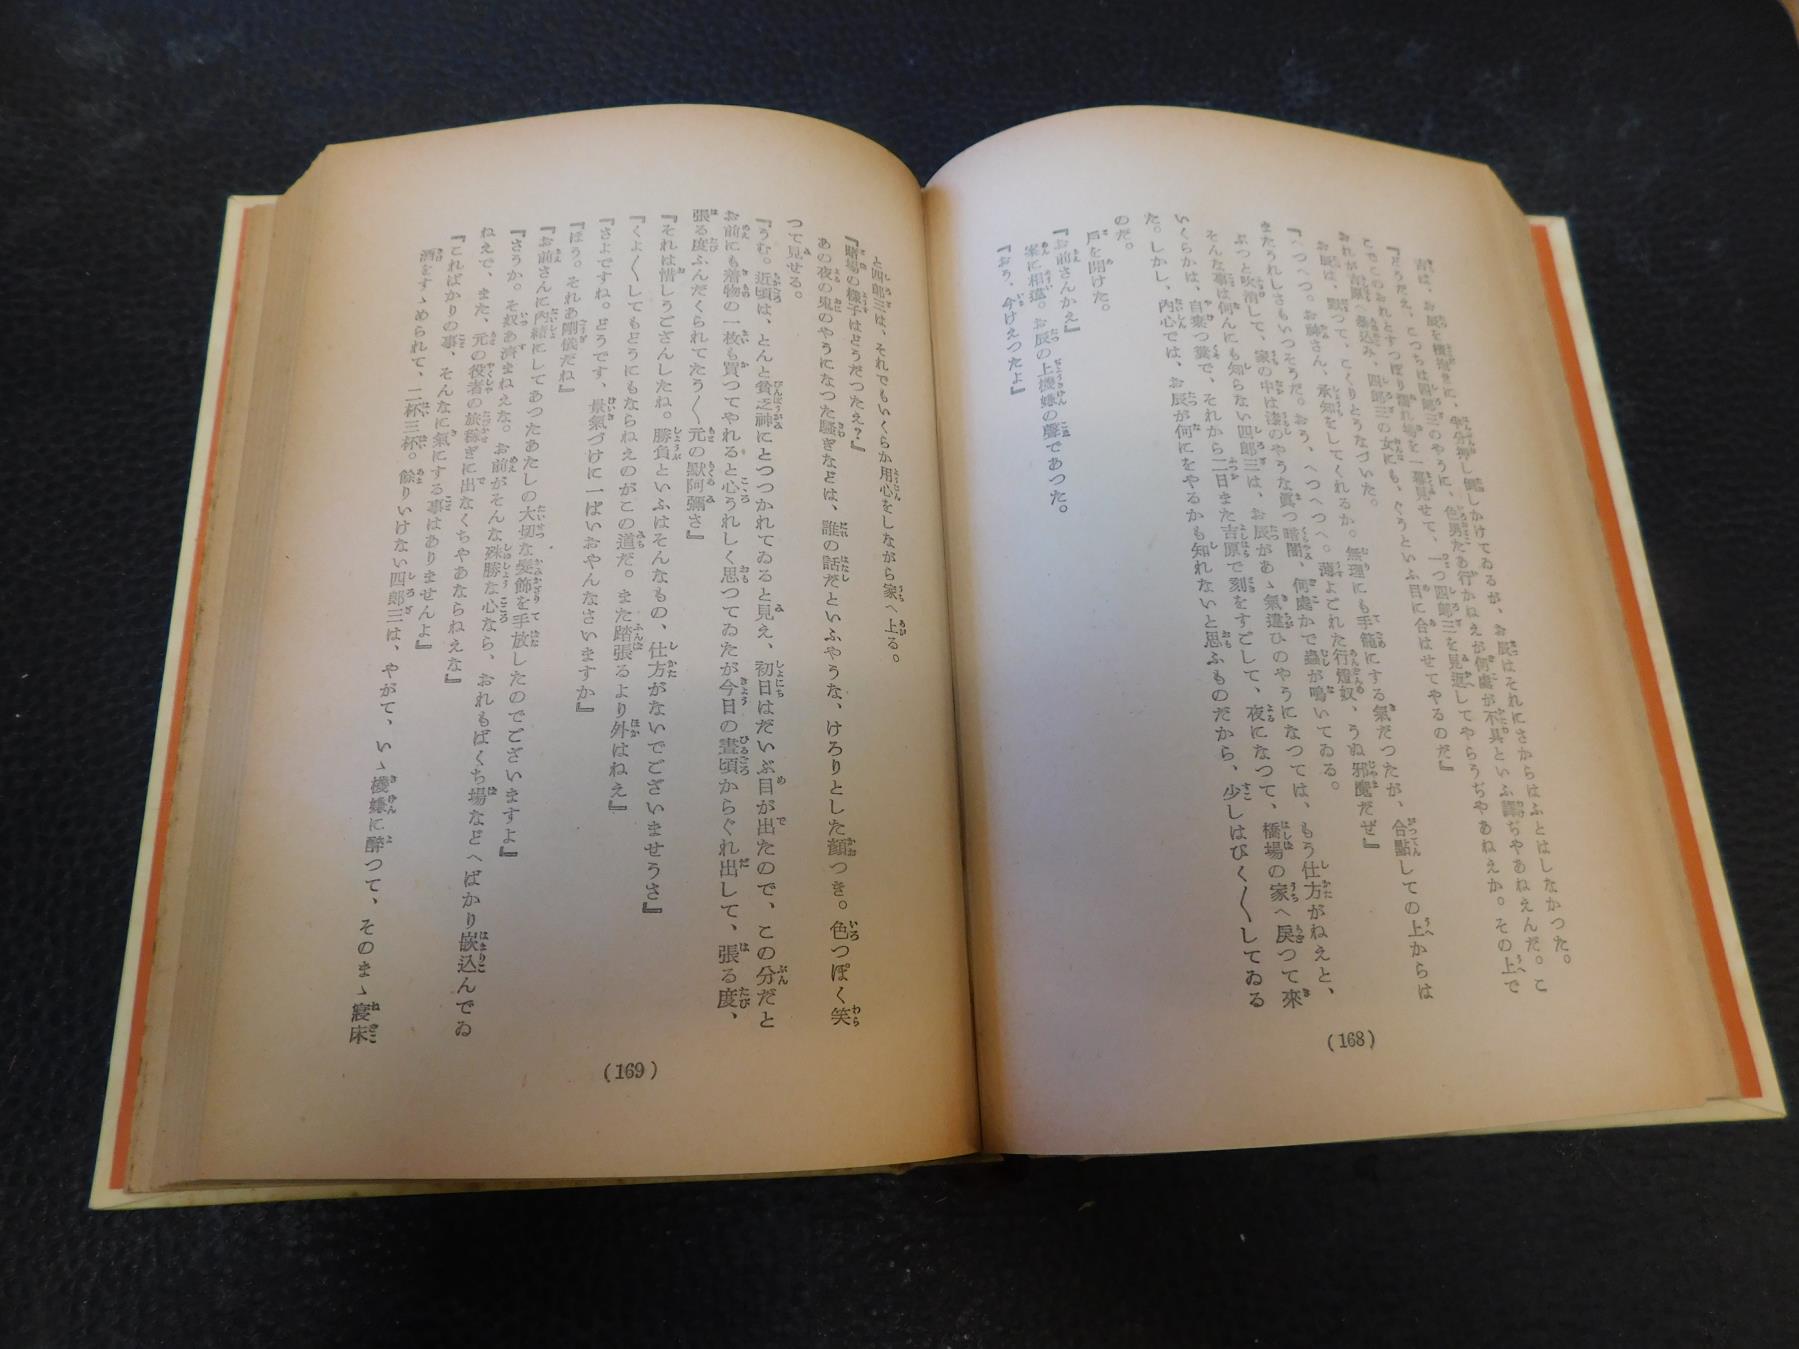 吉は、お辰を横抱きに、半分押し倒しかけてゐるが、お辰はそれにさからはふとはしなかつた。
『どうだえ、こつちは四郎三のやうに、色男たあ行かねえが何處が不具といふ譯ぢやあねえんだ。こ
こでこのおれとすつぽり濡れ場を一幕見せて、一つ四郎三を見返してやらうぢやあねえか。その上で
おれが吉原へ暴込み、四郎三の女にも、ぐうといふ目に合はせてやるのだ』
お辰は、默つて、こくりとうなづいた。
『へつへつ。お神さん、承知をしてくれるか。無理にも手籠にする氣だつたが、合點しての上からは
またうれしさもいつそうだ。おう、へつへつへ。薄よごれた行燈奴、うぬ邪魔だぜ』
ふつと吹消して、家の中は漆のやうな眞つ暗闇、何處かで蟲が鳴いてゐる。
そんな事は何んにも知らない四郎三は、お辰があゝ氣違ひのやうになつては、もう仕方がねえと、
いくらかは、自棄つ糞で、それから二日また吉原で刻をすごして、夜になつて、橋場の家へ戻つて來
た。しかし、内心では、お辰が何にをやるかも知れないと思ふものだから、少しはびく〱してゐる
のだ。
戸を開けた。
『お前さんかえ』
案に相違。お辰の上機嫌の聲であつた。
『おう、今けえつたよ』
(168)
と四郎三は、それでもいくらか用心をしながら家へ上る。
『賭場の樣子はどうだつたえ？』
あの夜の鬼のやうになつた騷ぎなどは、誰の話だといふやうな、けろりとした顏つき。色つぽく笑
つて見せる。
『うむ。近頃は、とんと貧乏神にとつつかれてゐると見え、初日はだいぶ目が出たので、この分だと
お前にも着物の一枚も買つてやれると心うれしく思つてゐたが今日の晝頃からぐれ出して、張る度、
張る度ふんだくられてたう〱元の默阿彌さ』
『それは惜しうござんしたね。勝負といふはそんなもの、仕方がないでございませうさ』
『くよ〱してもどうにもならねえのがこの道だ。また踏張るより外はねえ』
『さよですね。どうです、景氣づけに一ぱいおやんなさいますか』
『ほう。それあ剛儀だね』
『お前さんに内緒にしてあつたあたしの大切な髮飾を手放したのでございますよ』
『さうか。そ奴あ濟まねえな。お前がそんな殊勝な心なら、おれもばくち場などへばかり嵌込んでゐ
ねえで、また、元の役者の旅稼ぎに出なくちやあならねえな』
『こればかりの事、そんなに氣にする事はありませんよ』
酒をすゝめられて、二杯三杯。餘りいけない四郎三は、やがて、いゝ機嫌に醉つて、そのまゝ寢床
(169)